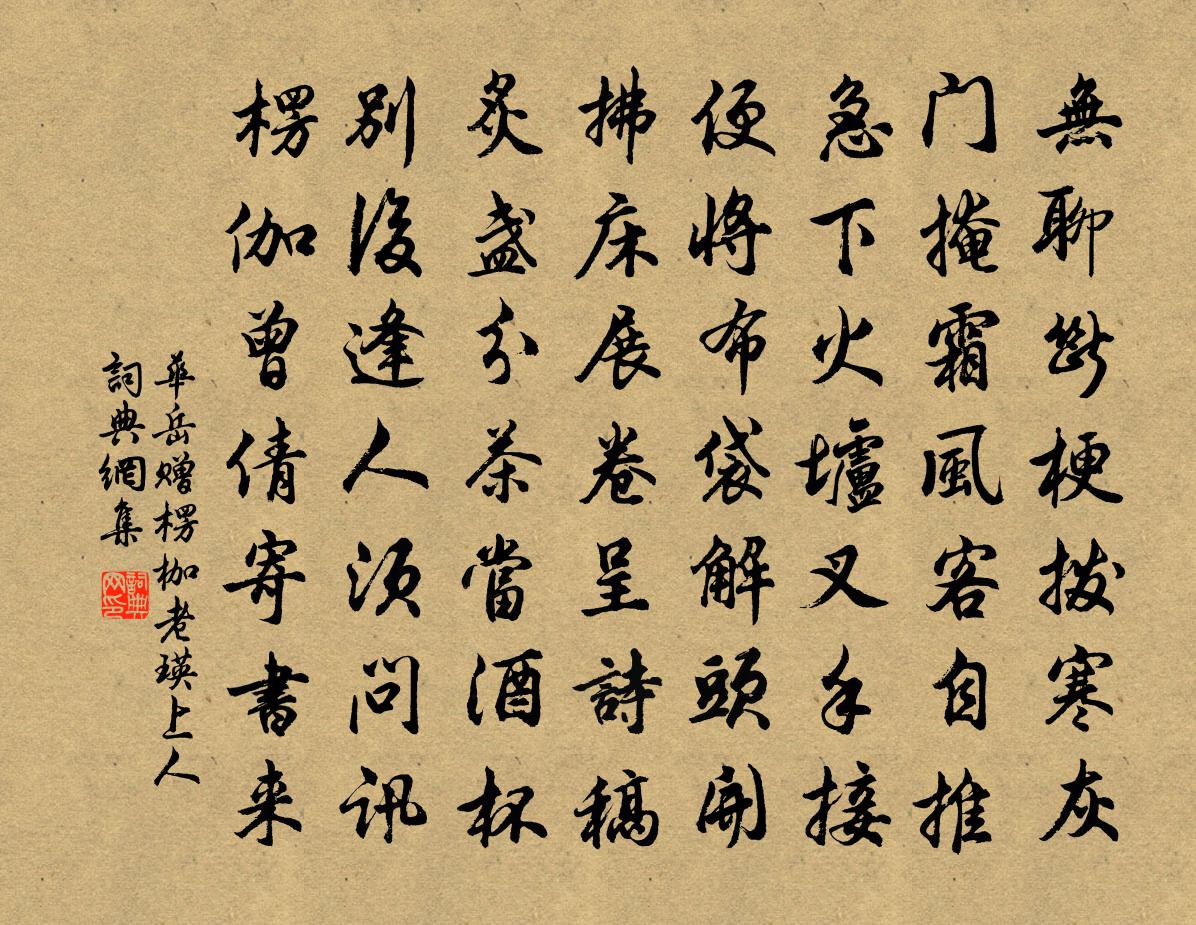 無聊斷梗撥寒灰
门掩霜風客自推
急下火壚叉手接
便將布袋解頭開
拂床展卷呈詩稿
炙盞分茶當酒杯
別後逢人須問訊
楞伽曾倩寄書来
華岳赠楞枷老瑛上人
詞典網集
詞典网印